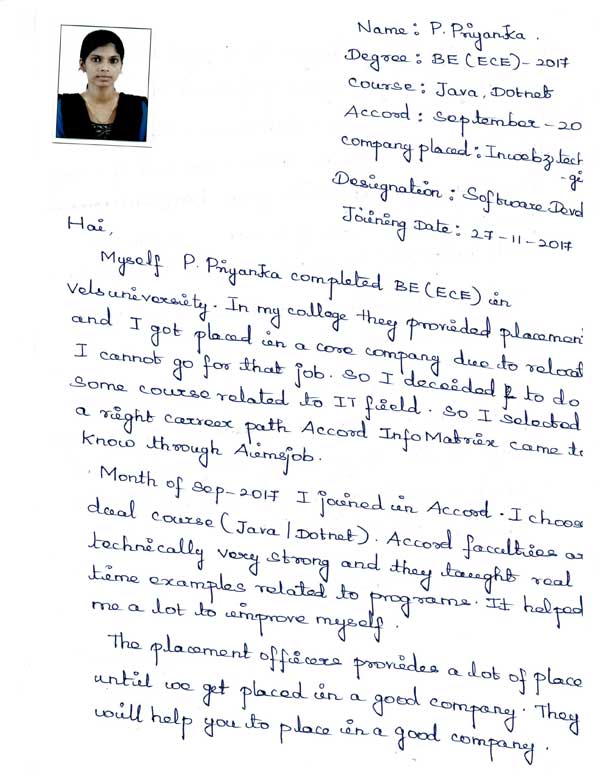 Name : P. Priyanka .
Degree : BE (ECE) - 2017
Course : Java, Dotnet
Accord : September - 20
company placed : Inwebz tech
- gi
Designation : Software Devel
Joining Date : 27 - 11 - 2017
Hai,
Myself P. Priyanka completed BE (ECE) in
vels university. In my college they provided placemen
and I got placed in a core company due to relocat
I cannot go for that job. So I deceided to do
some course related to IT field. so I selected
a right career path Accord InfoMatrix came to
know through Aimsjob.
Month of Sep-2017 I joined in Accord. I choos
dual course (Java | Dotnet). Accord faculties ar
technically very strong and they taught real
time examples related to programs. It helped
me a lot to improve myself.
The placement officers provides a lot of place
until we get placed in a good company. They
will help you to place in a good company.